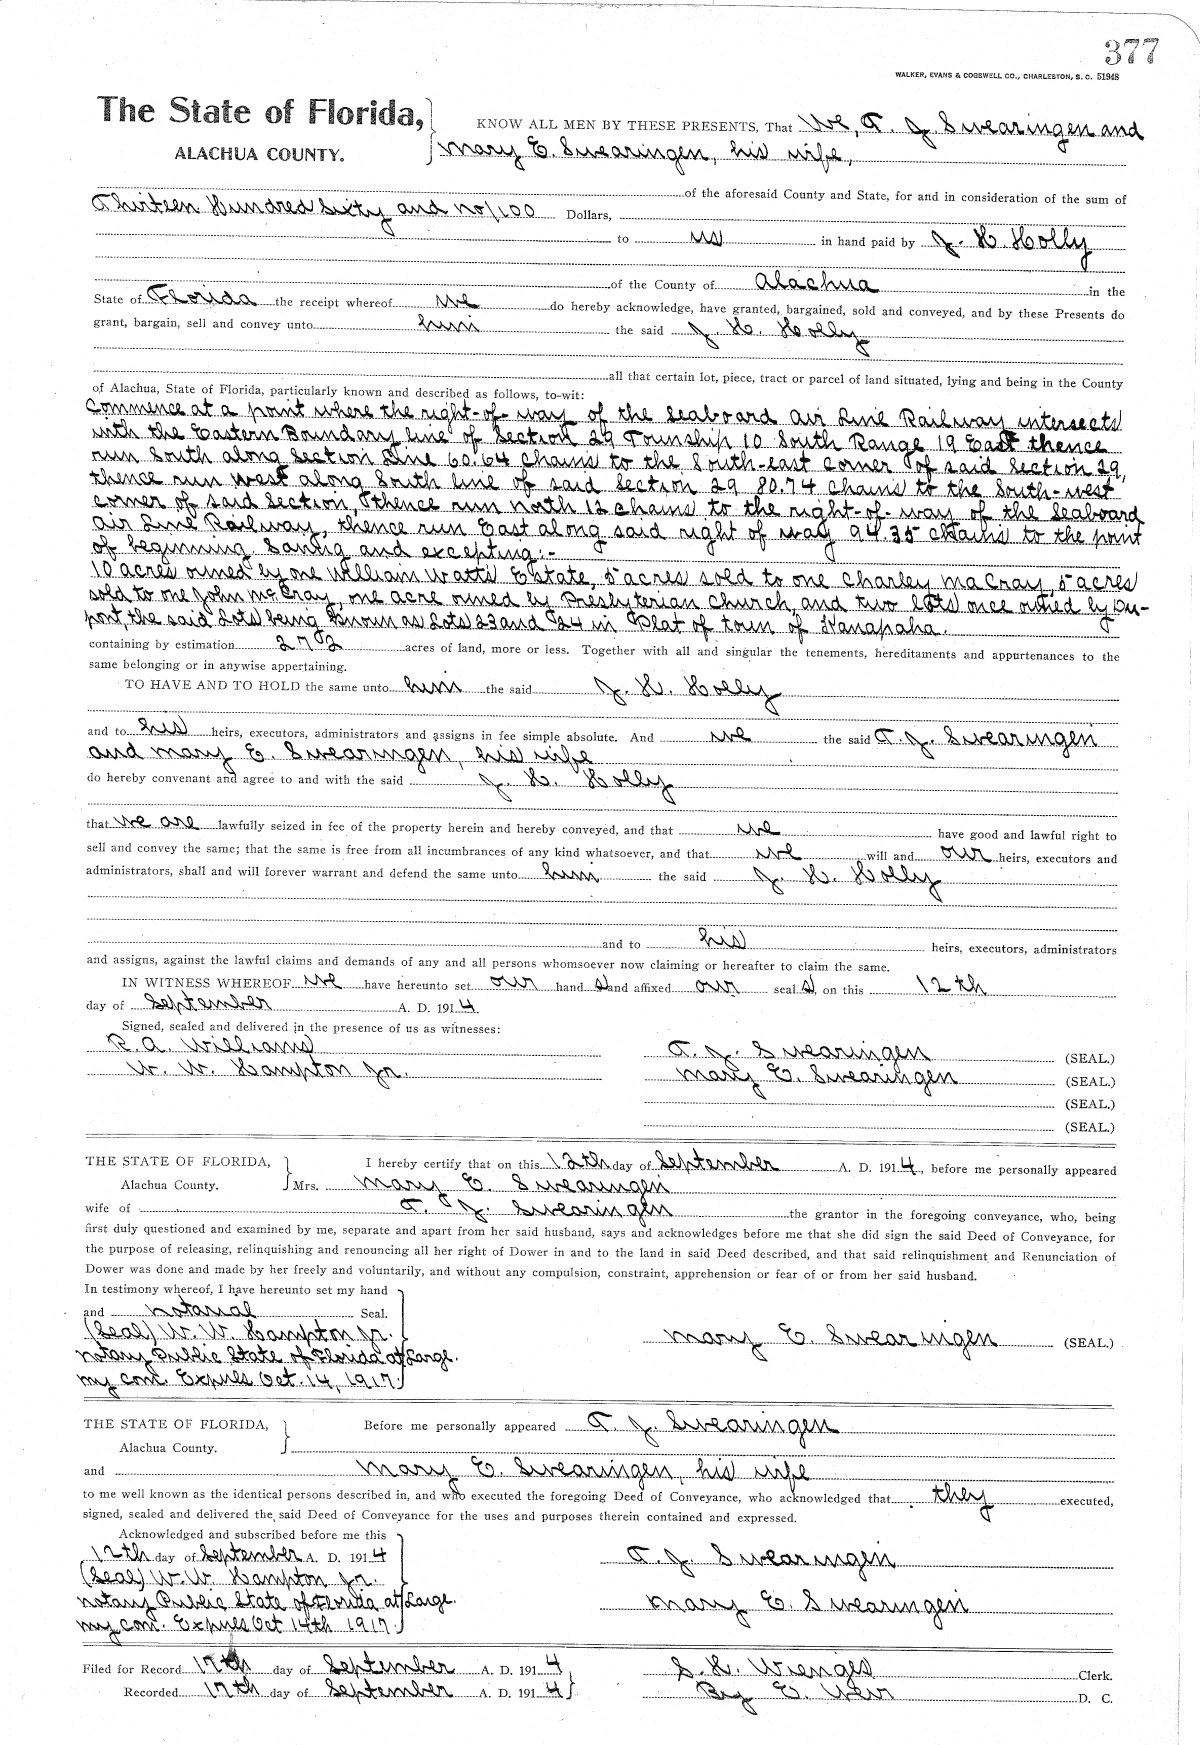 377
WALKER, EVANS & COGSWELL CO., CHARLESTON, S. C. 51948
The State of Florida,
ALACHUA COUNTY.
KNOW ALL MEN BY THESE PRESENTS, That We, T. J. Swearingen and
Mary E. Swearingen, his wife,
of the aforesaid County and State, for and in consideration of the sum of
Thirteen Hundred Sixty and no/100 Dollars,
to us in hand paid by J. H. Holly
of the County of Alachua in the
State of Florida the receipt whereof we do hereby acknowledge, have granted, bargained, sold and conveyed, and by these Presents do
grant, bargain, sell and convey unto him the said J. H. Holly
all that certain lot, piece, tract or parcel of land situated, lying and being in the County
of Alachua, State of Florida, particularly known and described as follows, to-wit:
Commence at a point where the right-of-way of the Seaboard Air Line Railway intersects
with the Eastern Boundary line of Section 29 Township 10 South Range 19 East thence
run South along Section Line 60.64 chains to the South-east corner of said Section 29,
thence run west along South line of said Section 29 80.74 chains to the South-west
corner of said Section, thence run north 12 chains to the right-of-way of the Seaboard
Air Line Railway, thence run East along said right of way 94.35 chains to the point
of beginning. Saving and excepting:-
10 acres owned by one William Watts Estate, 5 acres sold to one Charley MaCray, 5 acres
sold to one John McCray, one acre owned by Presbyterian Church, and two lots once owned by Du-
pont, the said Lots being known as Lots 23 and 24 in Plat of town of Kanapaha.
containing by estimation 272 acres of land, more or less. Together with all and singular the tenements, hereditaments and appurtenances to the
same belonging or in anywise appertaining.
TO HAVE AND TO HOLD the same unto him the said J. H. Holly
and to his heirs, executors, administrators and assigns in fee simple absolute. And we the said T. J. Swearingen
and Mary E. Swearingen, his wife
do hereby convenant and agree to and with the said J. H. Holly
that we are lawfully seized in fee of the property herein and hereby conveyed, and that we have good and lawful right to
sell and convey the same; that the same is free from all incumbrances of any kind whatsoever, and that we will and our heirs, executors and
administrators, shall and will forever warrant and defend the same unto him the said J. H. Holly
and to his heirs, executors, administrators
and assigns, against the lawful claims and demands of any and all persons whomsoever now claiming or hereafter to claim the same.
IN WITNESS WHEREOF we have hereunto set our hand s and affixed our seal s, on this 12th
day of September A. D. 1914.
Signed, sealed and delivered in the presence of us as witnesses:
R. A. Williams
W. W. Hampton Jr.
T. J. Swearingen (SEAL.)
Mary E. Swearingen (SEAL.)
(SEAL.)
(SEAL.)
THE STATE OF FLORIDA,
Alachua County.
I hereby certify that on this 12th day of September A. D. 1914, before me personally appeared
Mrs. Mary E. Swearingen
wife of T. J. Swearingen the grantor in the foregoing conveyance, who, being
first duly questioned and examined by me, separate and apart from her said husband, says and acknowledges before me that she did sign the said Deed of Conveyance, for
the purpose of releasing, relinquishing and renouncing all her right of Dower in and to the land in said Deed described, and that said relinquishment and Renunciation of
Dower was done and made by her freely and voluntarily, and without any compulsion, constraint, apprehension or fear of or from her said husband.
In testimony whereof, I have hereunto set my hand
and notarial Seal.
(Seal) W. W. Hampton Jr.
Notary Public State of Florida at Large.
My com. Expires Oct. 14, 1917.
Mary E. Swearingen (SEAL.)
THE STATE OF FLORIDA,
Alachua County.
Before me personally appeared T. J. Swearingen
and Mary E. Swearingen, his wife
to me well known as the identical persons described in, and who executed the foregoing Deed of Conveyance, who acknowledged that they executed,
signed, sealed and delivered the said Deed of Conveyance for the uses and purposes therein contained and expressed.
Acknowledged and subscribed before me this
12th day of September A. D. 1914
(Seal) W. W. Hampton Jr.
Notary Public State of Florida at Large.
My com. Expires Oct 14th 1917.
T. J. Swearingen
Mary E. Swearingen
Filed for Record 17th day of September A. D. 1914
Recorded 17th day of September A. D. 1914
S. H. Wienges Clerk.
By E. Weir D. C.